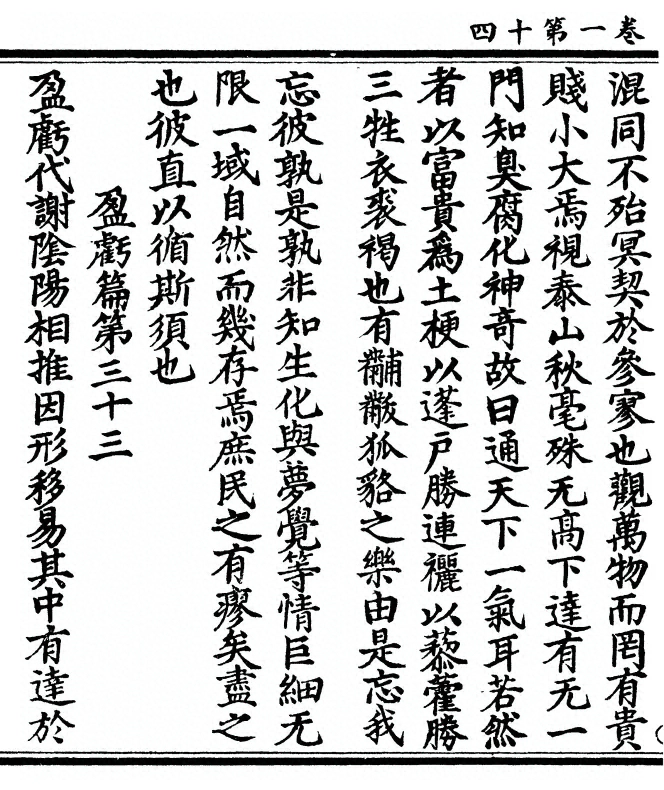 卷一第十四
混同不殆冥契於參寥也觀萬物而罔有貴
賤小大焉視泰山秋毫殊无高下達有无一
門知臭腐化神奇故曰通天下一氣耳若然
者以富貴爲土梗以蓬戶勝連𣟄以藜藿勝
三牲衣裘褐也有黼黻狐貉之樂由是忘我
忘彼孰是孰非知生化與夢覺等情巨細无
限一域自然而幾存焉庶民之有瘳矣盡之
也彼直以循斯須也
盈虧篇第三十三
盈虧代謝陰陽相推因形移易其中有達於